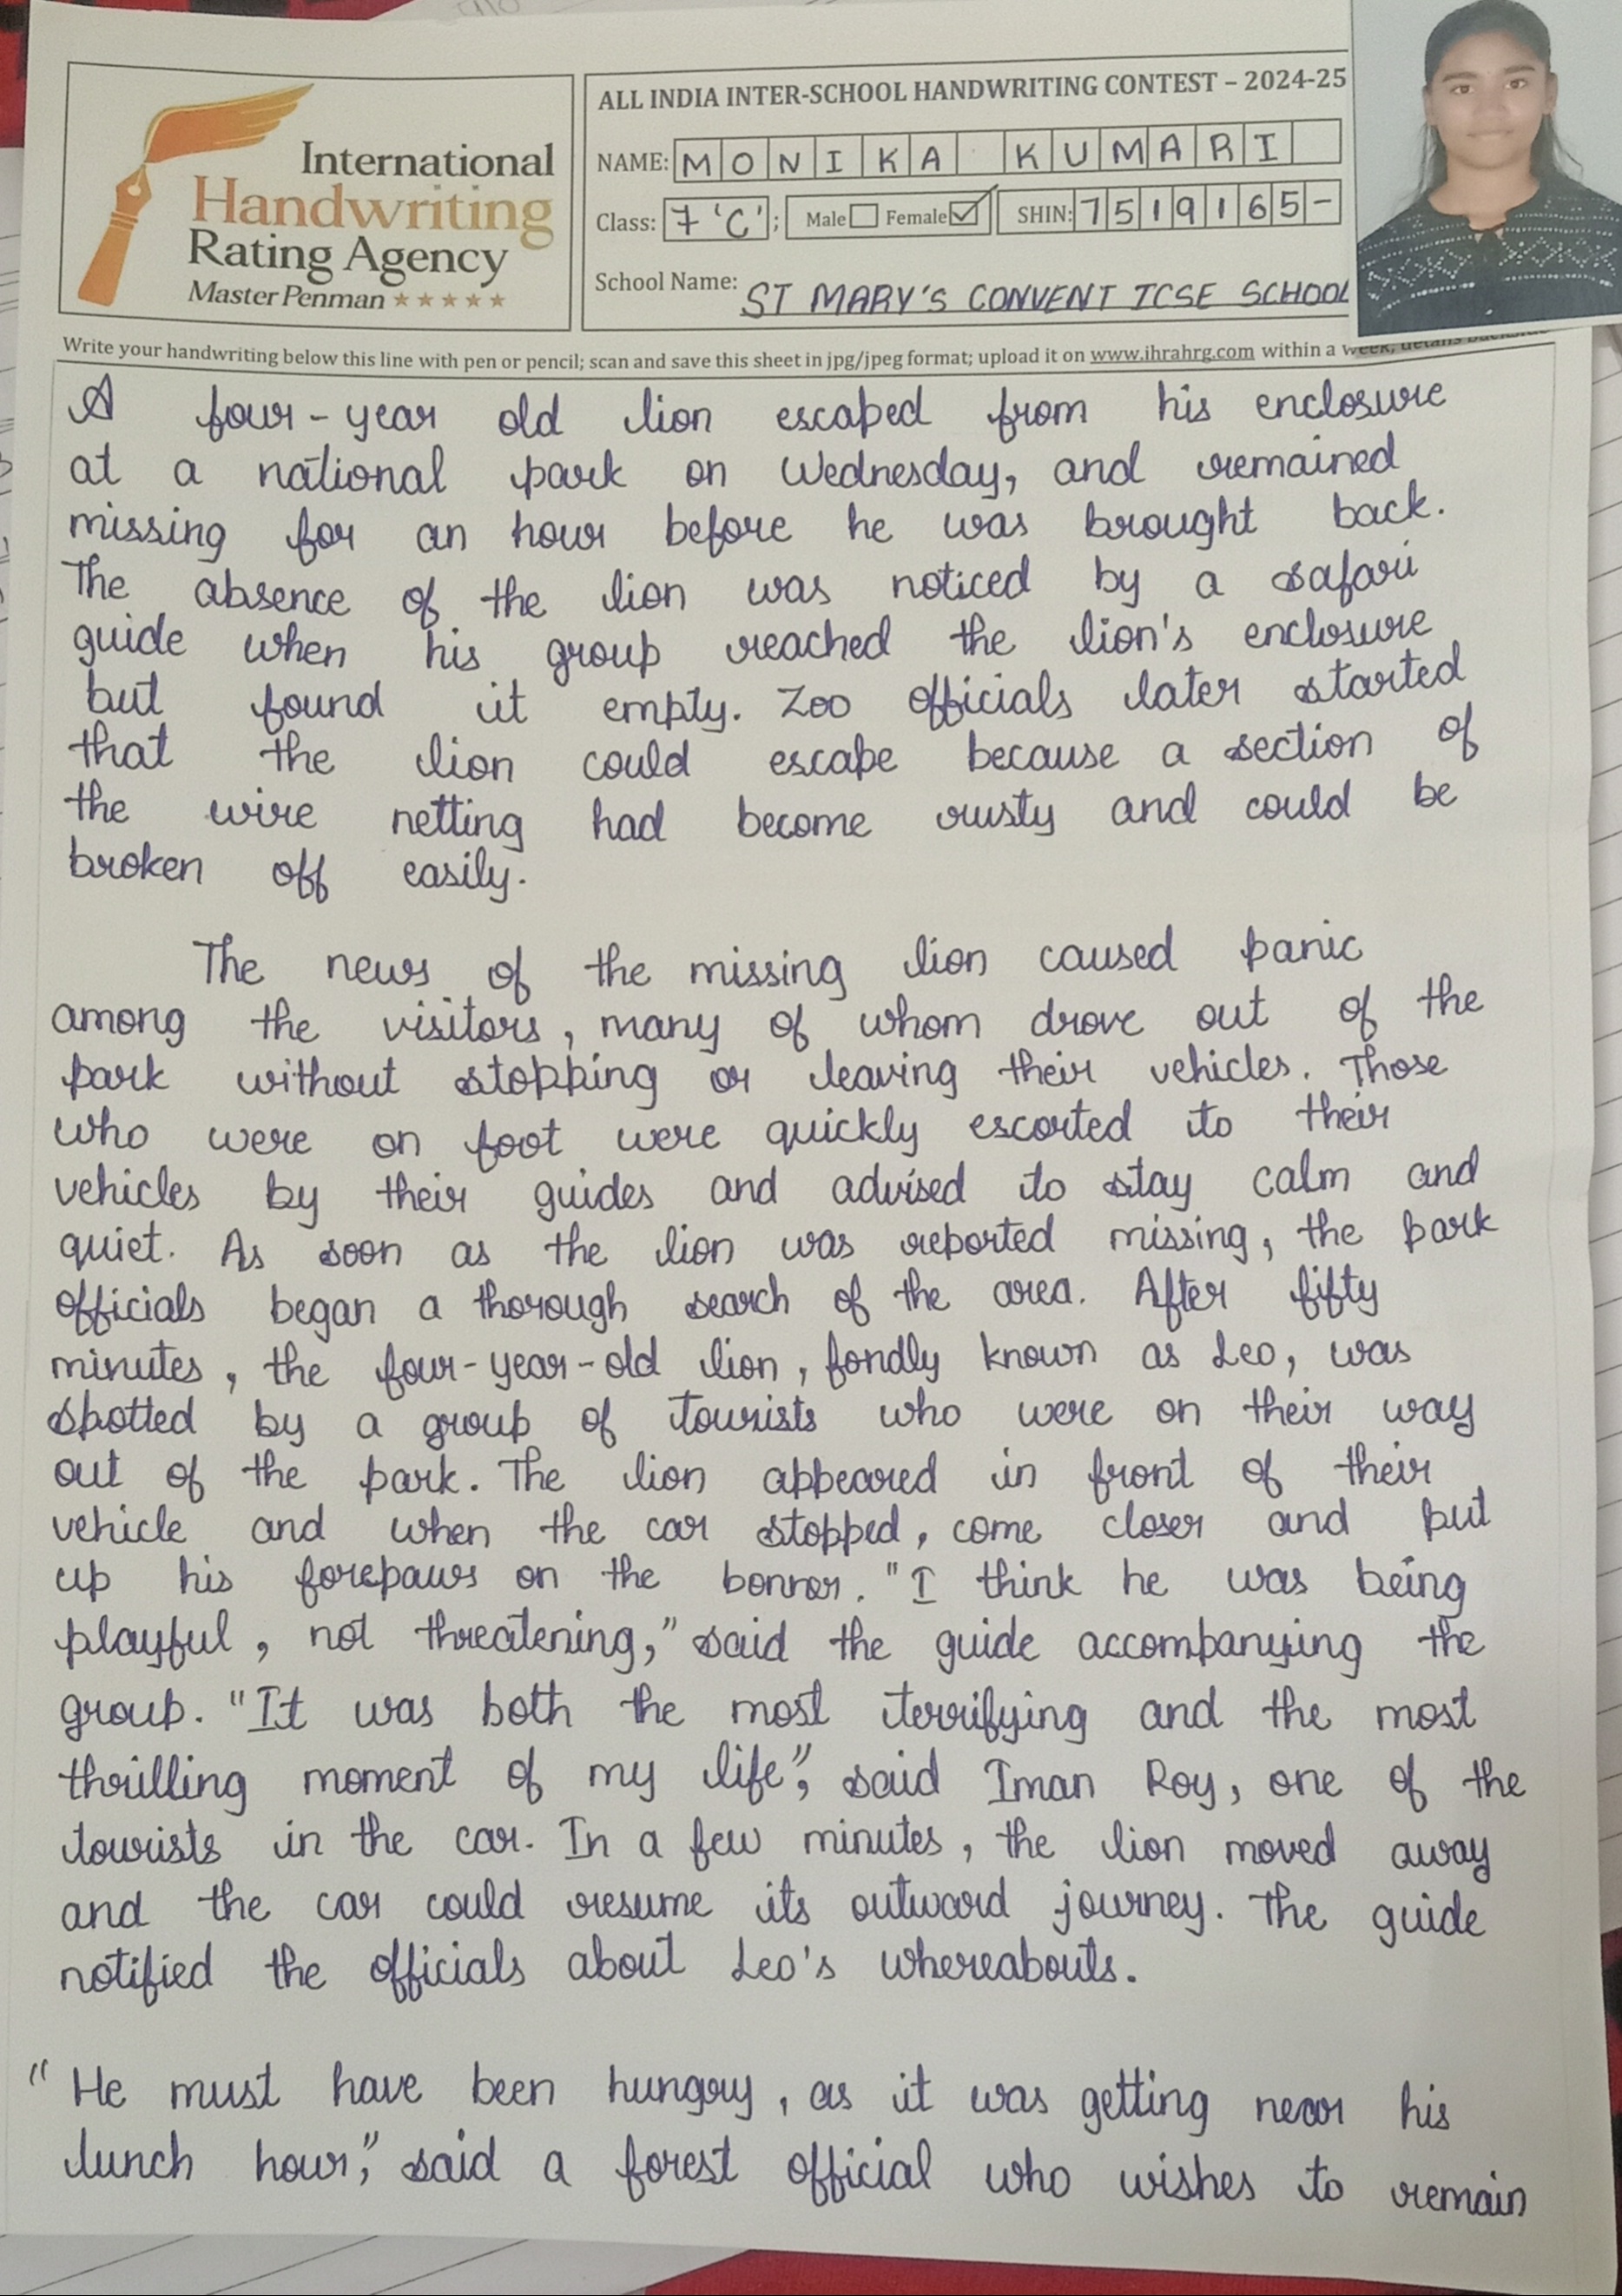 International
Handwriting
Rating Agency
Master Penman ★★★★★
ALL INDIA INTER-SCHOOL HANDWRITING CONTEST – 2024-25
NAME: MONIKA KUMARI
Class: 7 'C'; Male Female SHIN: 7519165-
School Name: ST MARY'S CONVENT ICSE SCHOOL
Write your handwriting below this line with pen or pencil; scan and save this sheet in jpg/jpeg format; upload it on www.ihrahrg.com within a week; details backside
A four-year old lion escaped from his enclosure
at a national park on Wednesday, and remained
missing for an hour before he was brought back.
The absence of the lion was noticed by a safari
guide when his group reached the lion's enclosure
but found it empty. Zoo officials later started
that the lion could escape because a section of
the wire netting had become rusty and could be
broken off easily.
The news of the missing lion caused panic
among the visitors, many of whom drove out of the
park without stopping or leaving their vehicles. Those
who were on foot were quickly escorted to their
vehicles by their guides and advised to stay calm and
quiet. As soon as the lion was reported missing, the park
officials began a thorough search of the area. After fifty
minutes, the four-year-old lion, fondly known as Leo, was
spotted by a group of tourists who were on their way
out of the park. The lion appeared in front of their
vehicle and when the car stopped, come closer and put
up his forepaws on the bonner. "I think he was being
playful, not threatening," said the guide accompanying the
group. "It was both the most terrifying and the most
thrilling moment of my life", said Iman Roy, one of the
tourists in the car. In a few minutes, the lion moved away
and the car could resume its outward journey. The guide
notified the officials about Leo's whereabouts.
"He must have been hungry, as it was getting near his
lunch hour", said a forest official who wishes to remain